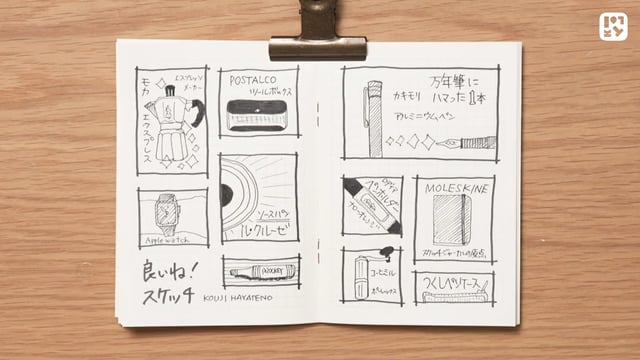 モカ
エクスプレス
エスプレッソ
メーカー
POSTALCO
ツールボックス
Apple watch
ソースパン
ル・クルーゼ
良いね!
スケッチ
KOUJI HAYATENO
万年筆に
カキモリ ハマった1本
アルミニウムペン
ペンホルダー
MOLESKINE
スケッチジャーナルの原点
コーヒーミル
ポーレックス
つくしペンケース